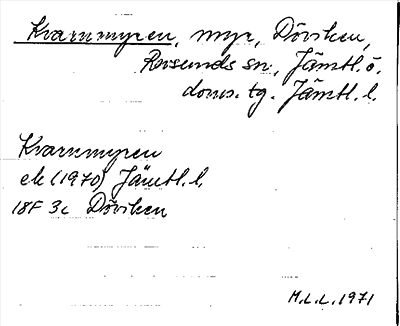 Kvarnmyren, myr, Döviken,
Revsunds sn, Jämtl. ö.
doms. tg. Jämtl. l.
Kvarnmyren
ek (1970) Jämtl. l.
18F 3c Döviken
M.L.L. 1971